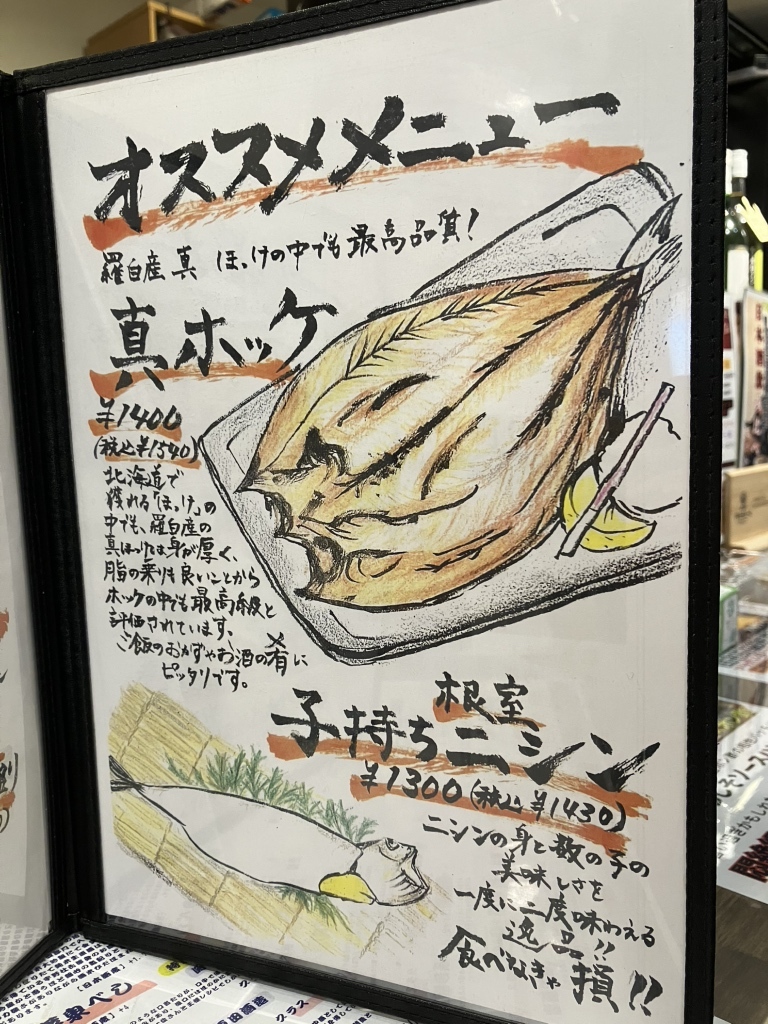 オススメメニュー
羅臼産 真 ほっけの中でも最高品質!
真ホッケ
¥1400
(税込¥1540)
北海道で
獲れる「ほっけ」の
中でも、羅臼産の
真ほっけは身が厚く、
脂の乗りも良いことから
ホッケの中でも最高級と
評価されています。
ご飯のおかずやお酒の肴に
ピッタリです。
根室
子持ちニシン
¥1300(税込¥1430)
ニシンの身と数の子の
美味しさを
一度に二度味わえる
逸品!!
食べなきゃ損!!